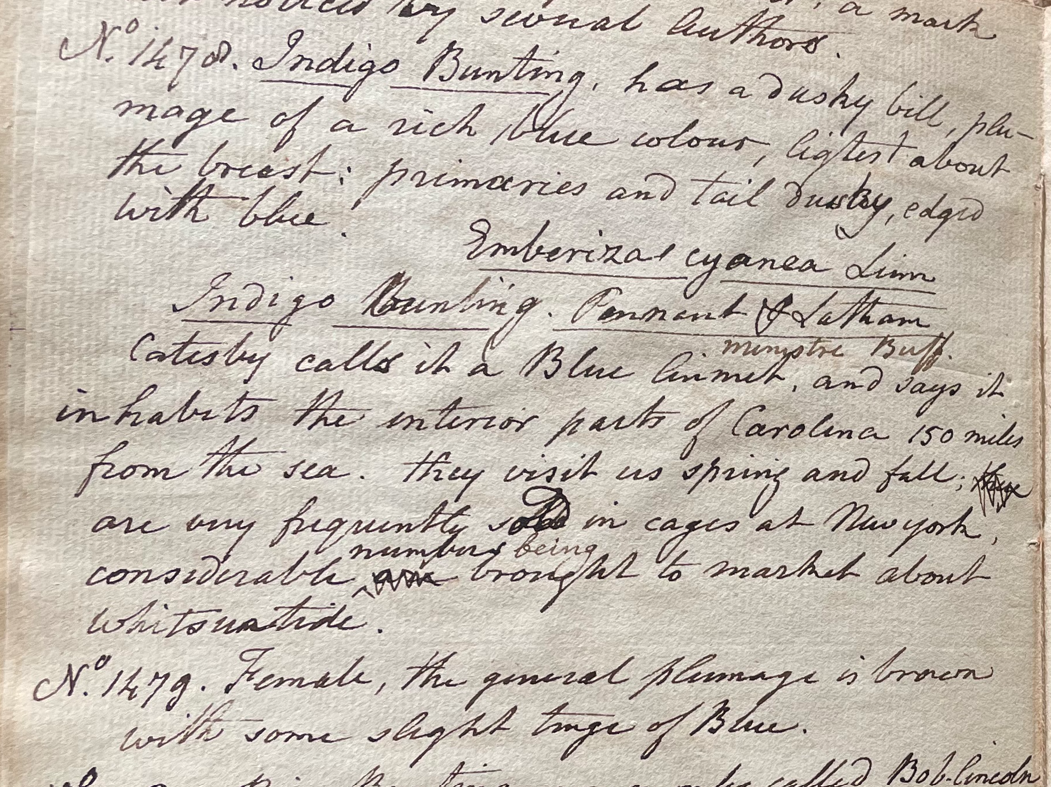 noticed by several authors.
a mark
No. 1478. Indigo Bunting, has a dusky bill, plu-
mage of a rich blue colour, ligtest about
the breast: primaries and tail dusky, edged
with blue.
Emberiza cyanea Linn
Indigo Bunting. Pennant & Latham
ministre Buff.
Catesby calls it a Blue linnet, and says it
inhabits the interior parts of Carolina 150 miles
from the sea. they visit us spring and fall;
are very frequently sold in cages at New york,
numbers being
considerable brought to market about
whitsuntide.
No. 1479. Female, the general plumage is brown
with some slight tinge of Blue.
called Bob-Lincoln